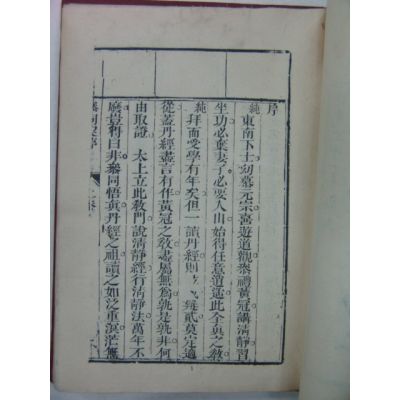 序
純東南下士幼慕元宗喜遊道觀叅禮黃冠講清靜習
坐功必棄妻子必要入山始得任意逍遙此全真之教
純拜而受學有年矣但一讀丹經則貳莫定適
從蓋丹經盡言有作黃冠之教盡屬無為孰是孰非何
由取證 太上立此教門說清靜經行清靜法萬年不
廢豈得曰非叅同悟真丹經之祖讀之如泛重溟茫無